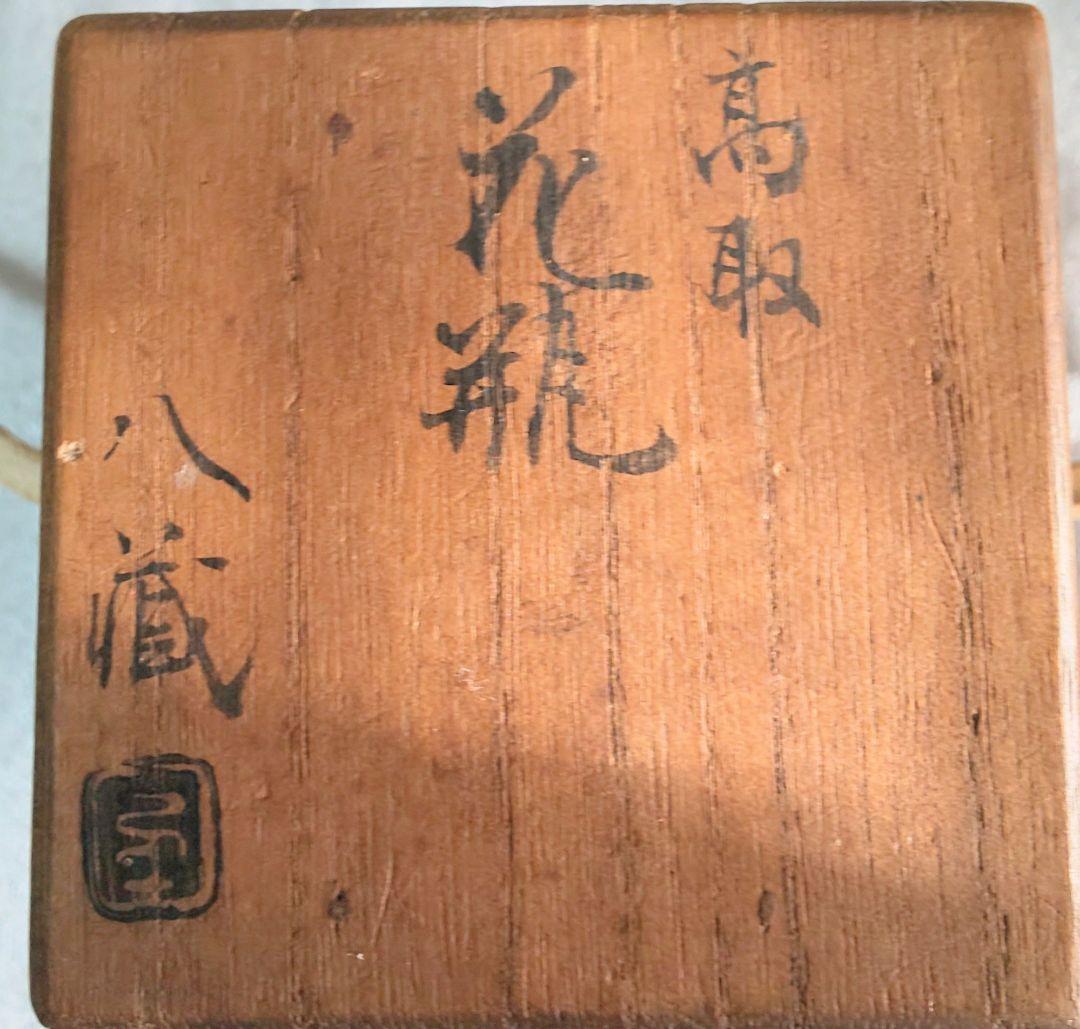 高取
花瓶
八蔵